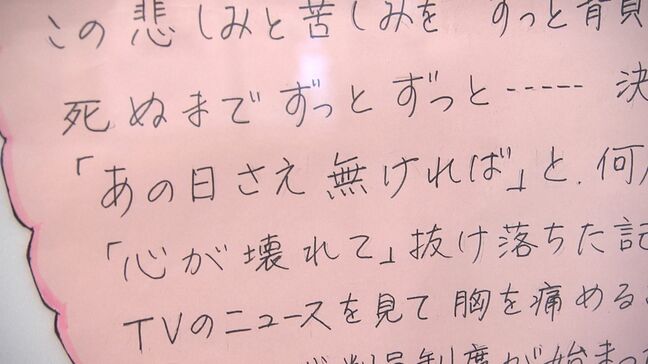 この 悲しみと苦しみを ずっと背負
死ぬまで ずっと ずっと----- 決
「あの日さえ 無ければ」と、何
「心が 壊れて」抜け落ちた記
TVのニュースを見て 胸を痛める
裁判員制度が始まっ